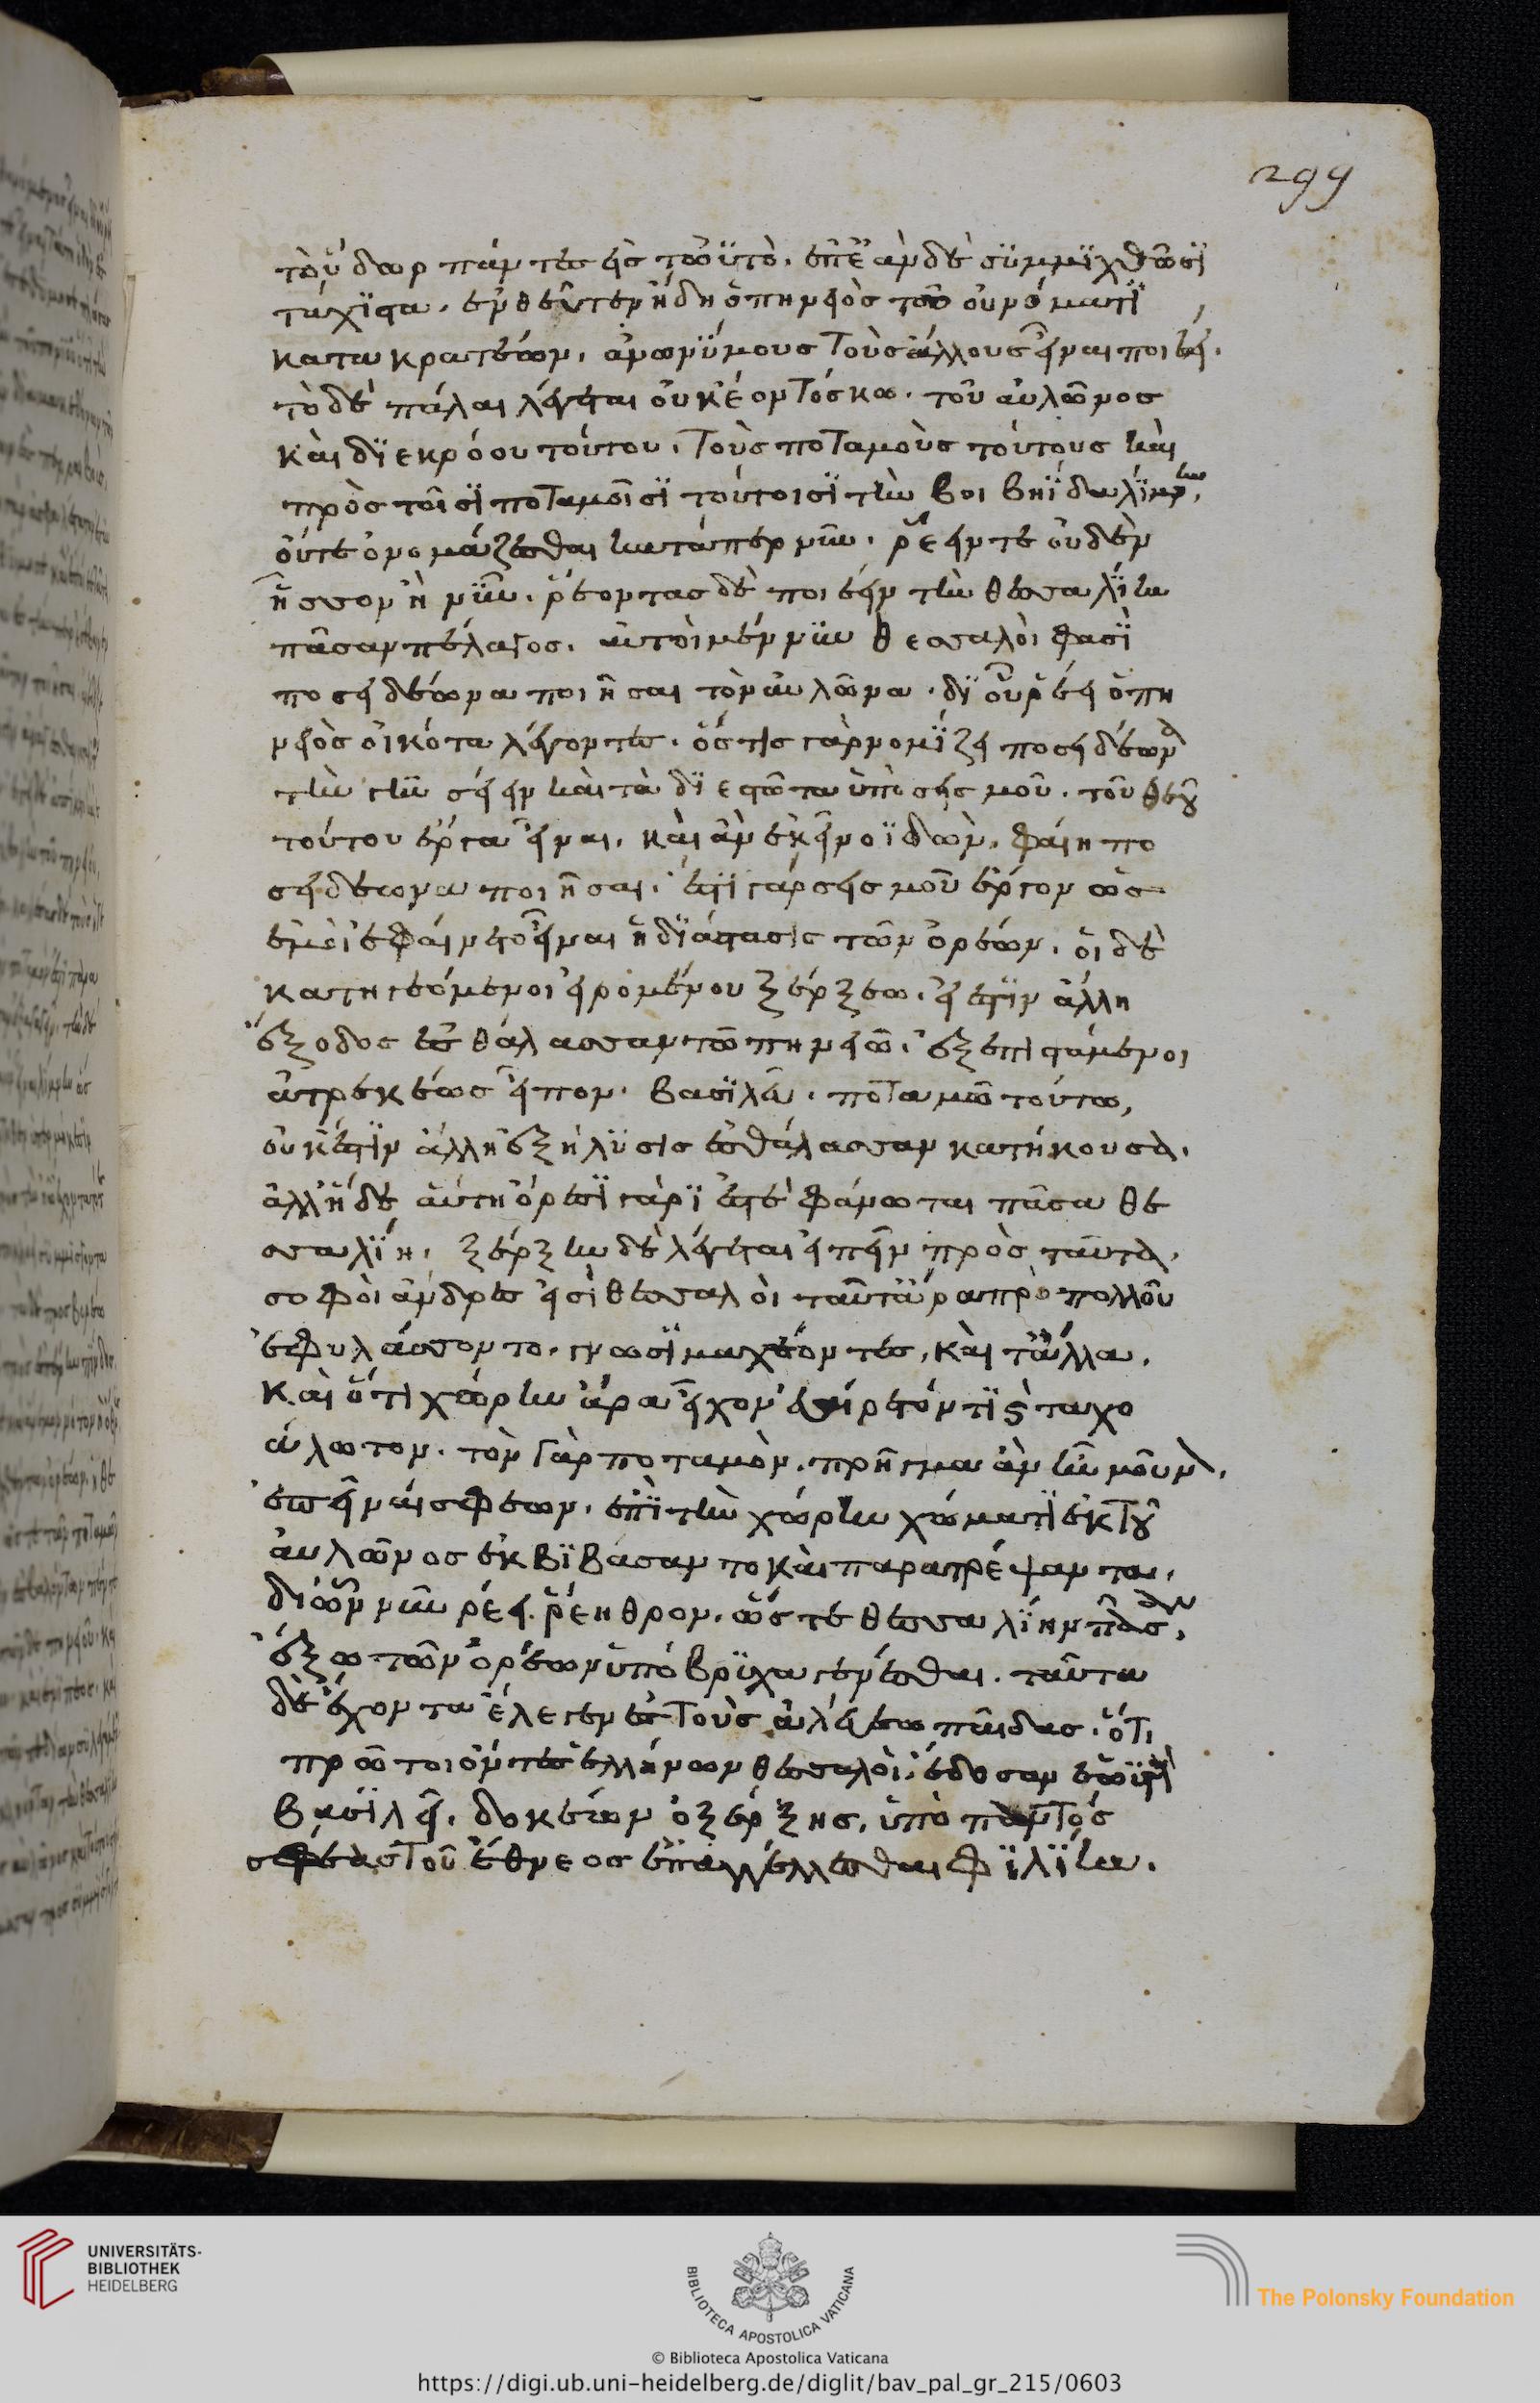 299
τὸ ὕδωρ πάντες ἐς τὠϋτὸ. ἐπεὰν δὲ συμμιχθῶσϊ
τάχϊστα. ἐνθεῦτεν ἤδη ὁ πηνειὸς τῶ οὐνόματϊ
κατακρατέων, ἀνωνύμους τοὺς ἄλλους εἶναι ποιέει.
τὸ δὲ πάλαι λέγεται οὐκ ἐόντός κω. τοῦ αὐλῶνος
καὶ δϊεκρόου τούτου. τοὺς ποταμοὺς τούτους καὶ
πρὸς τοῖσϊ ποταμοῖσϊ τούτοισϊ τὴν βοιβηΐδα λίμνην,
οὔτε ὀνομάζεσθαι κατάπερ νῦν. ῥέειν τε οὐδὲν
ἧσσον ἢ νῦν. ῥέοντας δὲ ποιέειν τὴν θεσσαλΐην
πᾶσαν πέλαγος. αὐτοὶ μέν νυν θεσσαλοὶ φασὶ
ποσειδέωνα ποιῆσαι τὸν αὐλῶνα. δϊ οὗ ῥέει ὁ πη
νειὸς οἰκότα λέγοντες. ὅστις γὰρ νομίζει ποσειδέωνα
τὴν γῆν σείειν καὶ τὰ δϊεστῶτα ὑπὸ σεισμοῦ. τοῦ θεοῦ
τούτου ἔργα εἶναι. καὶ ἂν ἐκεῖνο ἰδὼν. φαίη πο
σειδέωνα ποιῆσαι. ἔστι γὰρ σεισμοῦ ἔργον ὡς
ἐμοὶ ἐφαίνετο εἶναι ἡ δϊάστασις τῶν ὀρέων. οἱ δὲ
κατηγεόμενοι εἰρομένου ξέρξεω. εἰ ἔστϊν ἄλλη
ἔξοδος ἐς θάλασσαν τῶ πηνειῶ. ἐξεπιστάμενοι
ἀτρεκέως εἶπον. βασϊλεῦ. ποταμῶ τούτω,
οὐκ ἔστϊν ἄλλη ἐξήλυσις ἐς θάλασσαν κατήκουσα.
ἀλλ' ἥδε αὐτὴ ὄρεσϊ γὰρ ἐστεφάνωται πᾶσα θε
σσαλΐη. ξέρξην δὲ λέγεται εἰπεῖν πρὸς ταῦτα.
σοφοὶ ἄνδρες εἰσὶ θεσσαλοὶ ταῦτ' ἄρα πρὸ πολλοῦ
ἐφυλάσσοντο. γνωσϊμαχέοντες, καὶ τἄλλα.
καὶ ὅτι χώρην ἄρα εἶχον εὐαίρετόν τϊ καὶ ταχυ
άλωτον. τὸν γὰρ ποταμὸν. πρῆγμα ἂν ἦν μοῦνον.
ἐπεῖναί σφεων. ἐπὶ τὴν χώρην χώματϊ ἐκ τοῦ
αὐλῶνος ἐκβϊβάσαντο καὶ παρατρέψαντα.
δι' ὧν νῦν ῥέει ῥέηθρον. ὥστε θεσσαλΐην πᾶσαν
ἔξω τῶν ὀρέων ὑπόβρυχα γενέσθαι. ταῦτα
δὲ ἔχοντα ἔλεγεν ἐς τοὺς ἀλεύεω παῖδας. ὅτι
πρῶτοι ὄντες ἑλλήνων θεσσαλοὶ. ἔδοσαν ἑωϋτοὺς
βασϊλεῖ. δοκέων ὁ ξέρξης, ὑπὸ παντός
σφεας τοῦ ἔθνεος ἐπαγγέλλεσθαι φϊλΐην.
UNIVERSITÄTS-
BIBLIOTHEK
HEIDELBERG
BIBLIOTECA APOSTOLICA VATICANA
The Polonsky Foundation
© Biblioteca Apostolica Vaticana
https://digi.ub.uni-heidelberg.de/diglit/bav_pal_gr_215/0603